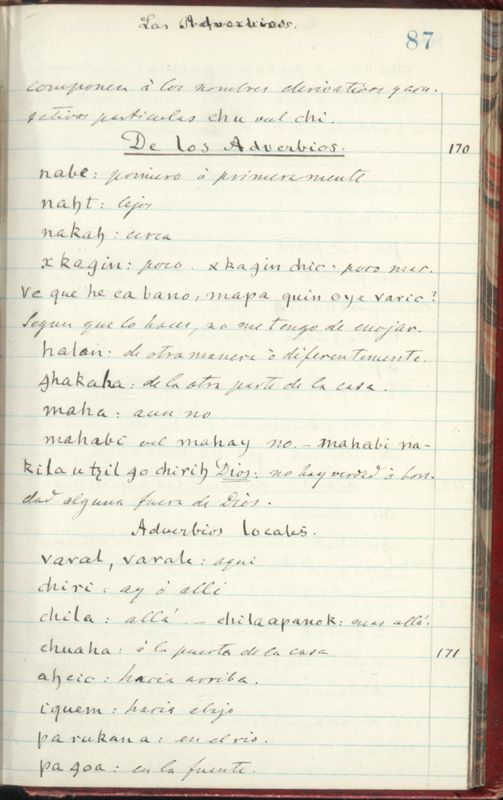 Los Adverbios.
87
componen à los nombres derivativos y acu-
sativos particulas chu vel chi.
De los Adverbios. 170
nabe: primero ò primeramente
naht: lejos
nakah: cerca
xkagin: poco. xkagin chic: poco mas.
Ve que he ca bano, mapa quin oye varic?
Segun que lo haces, no me tengo de enojar.
halan: de otra manera ò diferentemente.
ghakaha: de la otra parte de la casa.
maha: aun no
mahabi vel mahay no. – mahabi na-
kila utzil go chirih Dios: no hay verdad ò bon-
dad alguna fuera de Dios.
Adverbios locales.
varal, varale: aqui
chiri: ay ò allí
chila: allá. – chilaapanok: mas allá.
chuaha: à la puerta de la casa 171
aheic: hacia arriba.
iquem: hacia abajo
parukana: en el rio.
pagoa: en la fuente.